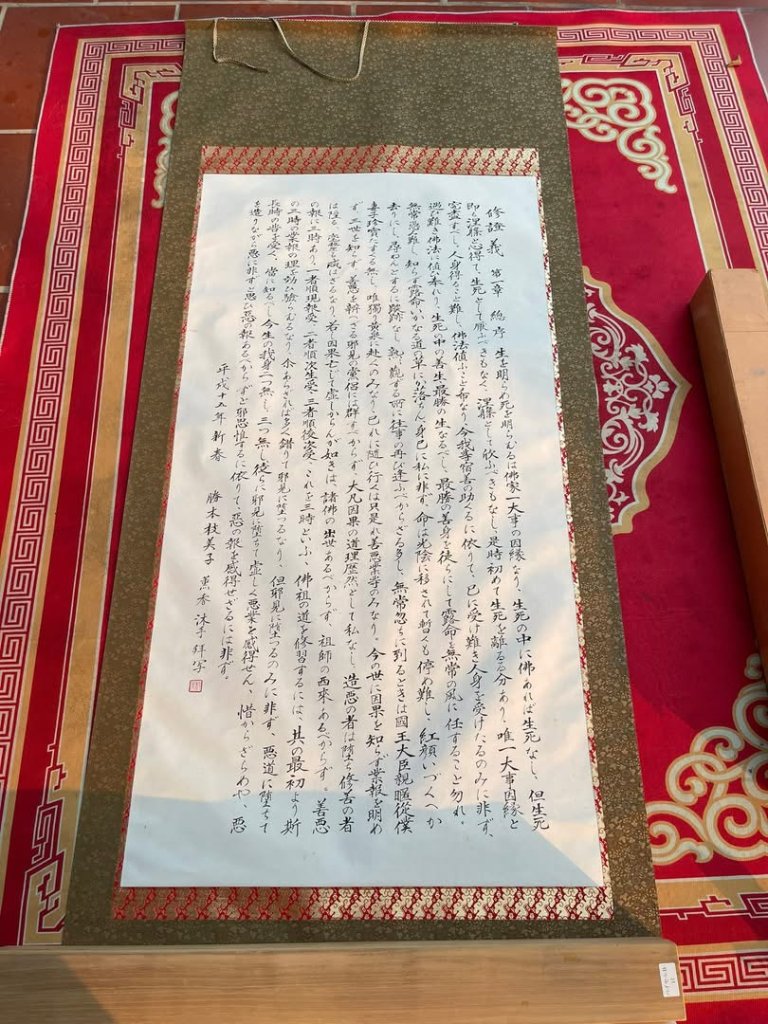 修證義 第一章 總序 生を明らめ死を明らむるは佛家一大事の因縁なり、生死の中に佛あれば生死なし、但生死
即ち涅槃と心得て、生死として厭ふべきもなく、涅槃として欣ふべきもなし、是時初めて生死を離るる分あり、唯一大事因縁と
究盡すべし、人身得ること難し、佛法値ふこと希なり、今我等宿善の助くるに依りて、已に受け難き人身を受けたるのみに非ず、
遇ひ難き佛法に値ひ奉れり、生死の中の善生、最勝の生なるべし、最勝の善身を徒らにして露命を無常の風に任すること勿れ。
無常憑み難し、知らず露命いかなる道の草にか落ちん、身已に私に非ず、命は光陰に移されて暫くも停め難し、紅顔いづくへか
去りにし、尋ねんとするに蹤跡なし、熟観ずる所に往事の再び逢ふべからざる多し、無常忽ちに到るときは國王大臣親暱從僕
妻子珍寶たすくる無し、唯獨り黄泉に赴くのみなり、己れに隨ひ行くは只是れ善惡業等のみなり、今の世に因果を知らず業報を明め
ず、三世を知らず、善惡を辨へざる邪見の黨侶には群すべからず、大凡因果の道理歴然として私なし、造惡の者は堕ち修善の者
は陞る、毫釐も忒はざるなり、若し因果亡じて虚しからんが如きは、諸佛の出世あるべからず、祖師の西來あるべからず。善惡
の報に三時あり、一者順現報受、二者順次生受、三者順後次受、これを三時といふ、佛祖の道を修習するには、其の最初より斯
の三時の業報の理を効ひ驗らむるなり、爾あらざれば多く錯りて邪見に堕つるなり、但邪見に堕つるのみに非ず、惡道に堕ちて
長時の苦を受く、當に知るべし今生の我身二つ無し、三つ無し、徒らに邪見に堕ちて虚しく惡業を感得せん、惜からざらめや、惡
を造りながら惡に非ずと思ひ、惡の報あるべからずと邪思惟するに依りて、惡の報を感得せざるには非ず。
平成十八年新春 勝本枝美子 焚香沐手拝写